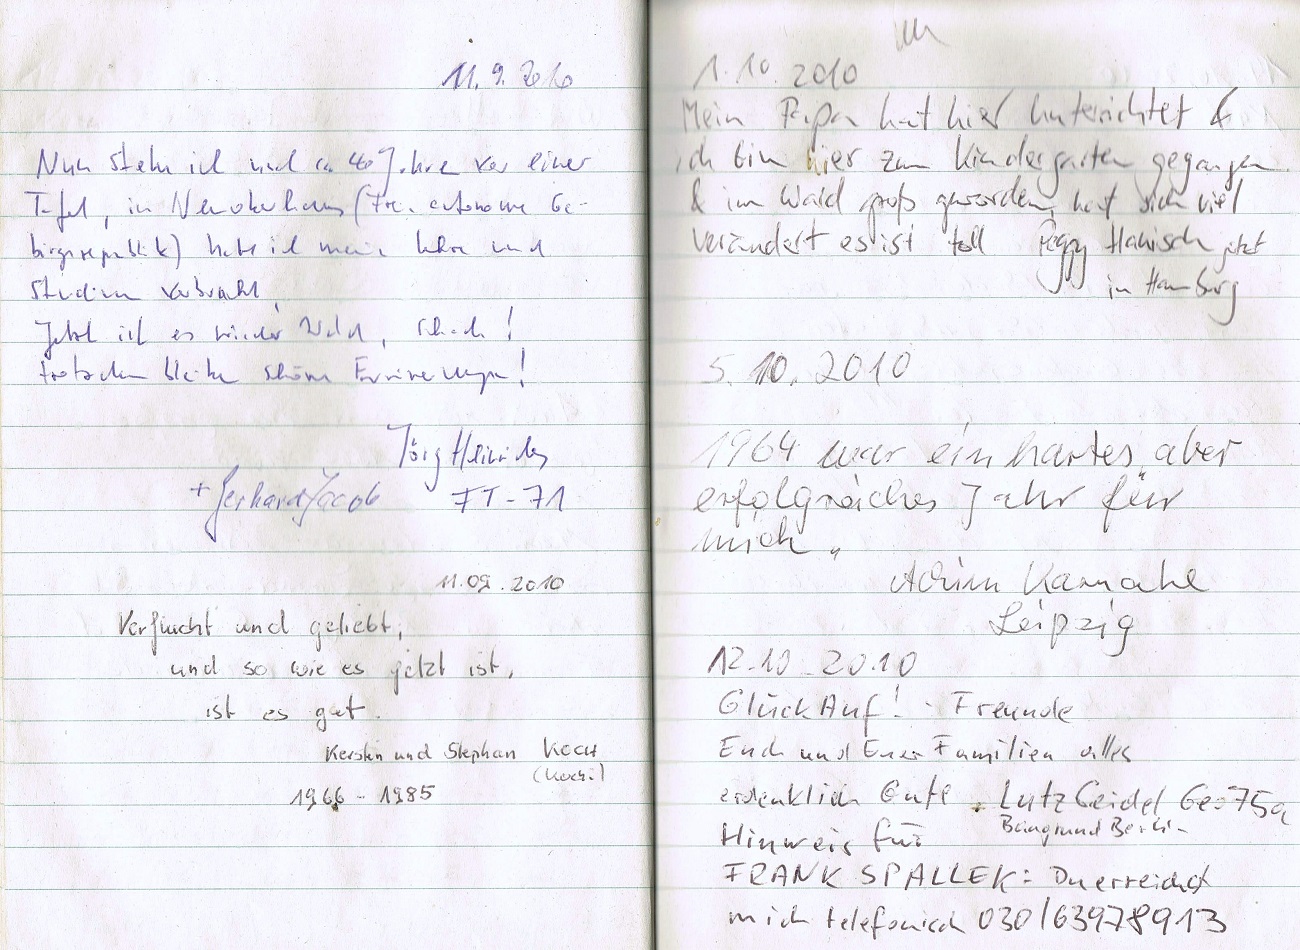 11.9.2010
Nun stehe ich nach ca 40 Jahre vor einer
Tafel, in (Freie autonome Ge-
birgsrepublik) habe ich meine Lehre und
Studium verbracht,
Jetzt ist es wieder Wald, schade!
trotzdem bleiben schöne Erinnerungen!
Jörg
+ Gerhard Jacob FT-71
11.09.2010
Verflucht und geliebt,
und so wie es jetzt ist,
ist es gut.
Kerstin und Stephan Koch
(Kochi)
1966 - 1985
1.10.2010
Mein Papa hat hier unterrichtet &
ich bin hier zum Kindergarten gegangen
& im Wald groß geworden, hat sich viel
verändert es ist toll Peggy Hanisch jetzt
in Hamburg
5.10.2010
1964 war ein hartes, aber
erfolgreiches Jahr für
mich"
Leipzig
12.10.2010
Glück Auf! - Freunde
Euch und Euer Familien alles
erdenklich Gute. Lutz Seidel Geo75a
Baugrund Berlin
Hinweis für
FRANK SPALLEK: Du erreichst
mich telefonisch 030/63978913